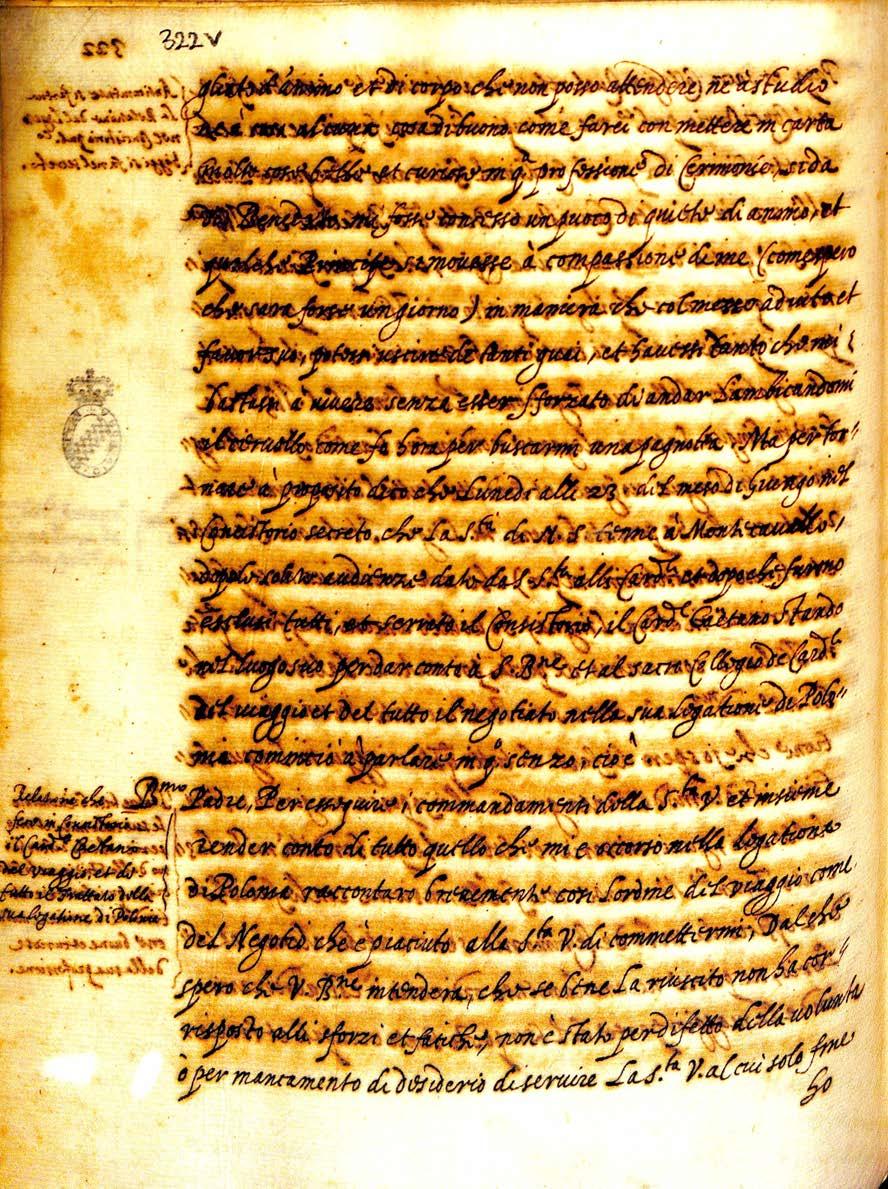 322v
gliato d'animo et di corpo che non posso attendere ne à studio
ne à cosa alcuna di buono come farei con mettere in carta
molte cose belle et curiose in q.a professione di Cerimonie, si da
Dio Benedetto mi fosse concesso un puoco di quiete di animo, et
qualche Principe si movesse à compassione di me (come spero
che sara forse un giorno) in maniera che col mezzo adiuto et
favor suo, potessi uscire de tanti guai, et havessi tanto che mi
bastassi à vivere senza esser sforzato di andar Lambicandomi
il cervello come fo hora per buscarmi una pagnotta. Ma per tor-
nare à proposito dico che Lunedi alli 23 del mese di Giungo nel
Concistorio secreto che La S.tà di N. S. tenne à Montecavallo,
dopo le solite audienze date da S. S.tà alli Card.li et dopo che furono
esclusi tutti, et serrato il Concistorio, il Card.le Gaetano stando
nel luogo suo per dar conto à S. B.ne et al sacro Collegio de Card.li
del viaggio et del tutto il negotiato nella sua legatione di Polo-
nia cominciò à parlare in q.o senso, cioè
Relatione che
fece in Concistorio
il Card.le Gaetano
del viaggio et di
tutto il trattato della
sua legatione di Polonia
B.mo Padre, Per esseguire i commandamenti della S.tà V. et insieme
render conto di tutto quello che mi è occorso nella legatione
di Polonia raccontaro brevemente così l'ordine del viaggio come
del Negotio che è piaciuto alla S.tà V. di commettermi, Dal che
spero che V. B.ne intenderà, che se bene La riuscita non ha cor-
risposto alli sforzi et fatiche, non è stato per difetto della volunta
ò per mancamento di desiderio di servire La S.tà V. al cui solo fine
ho